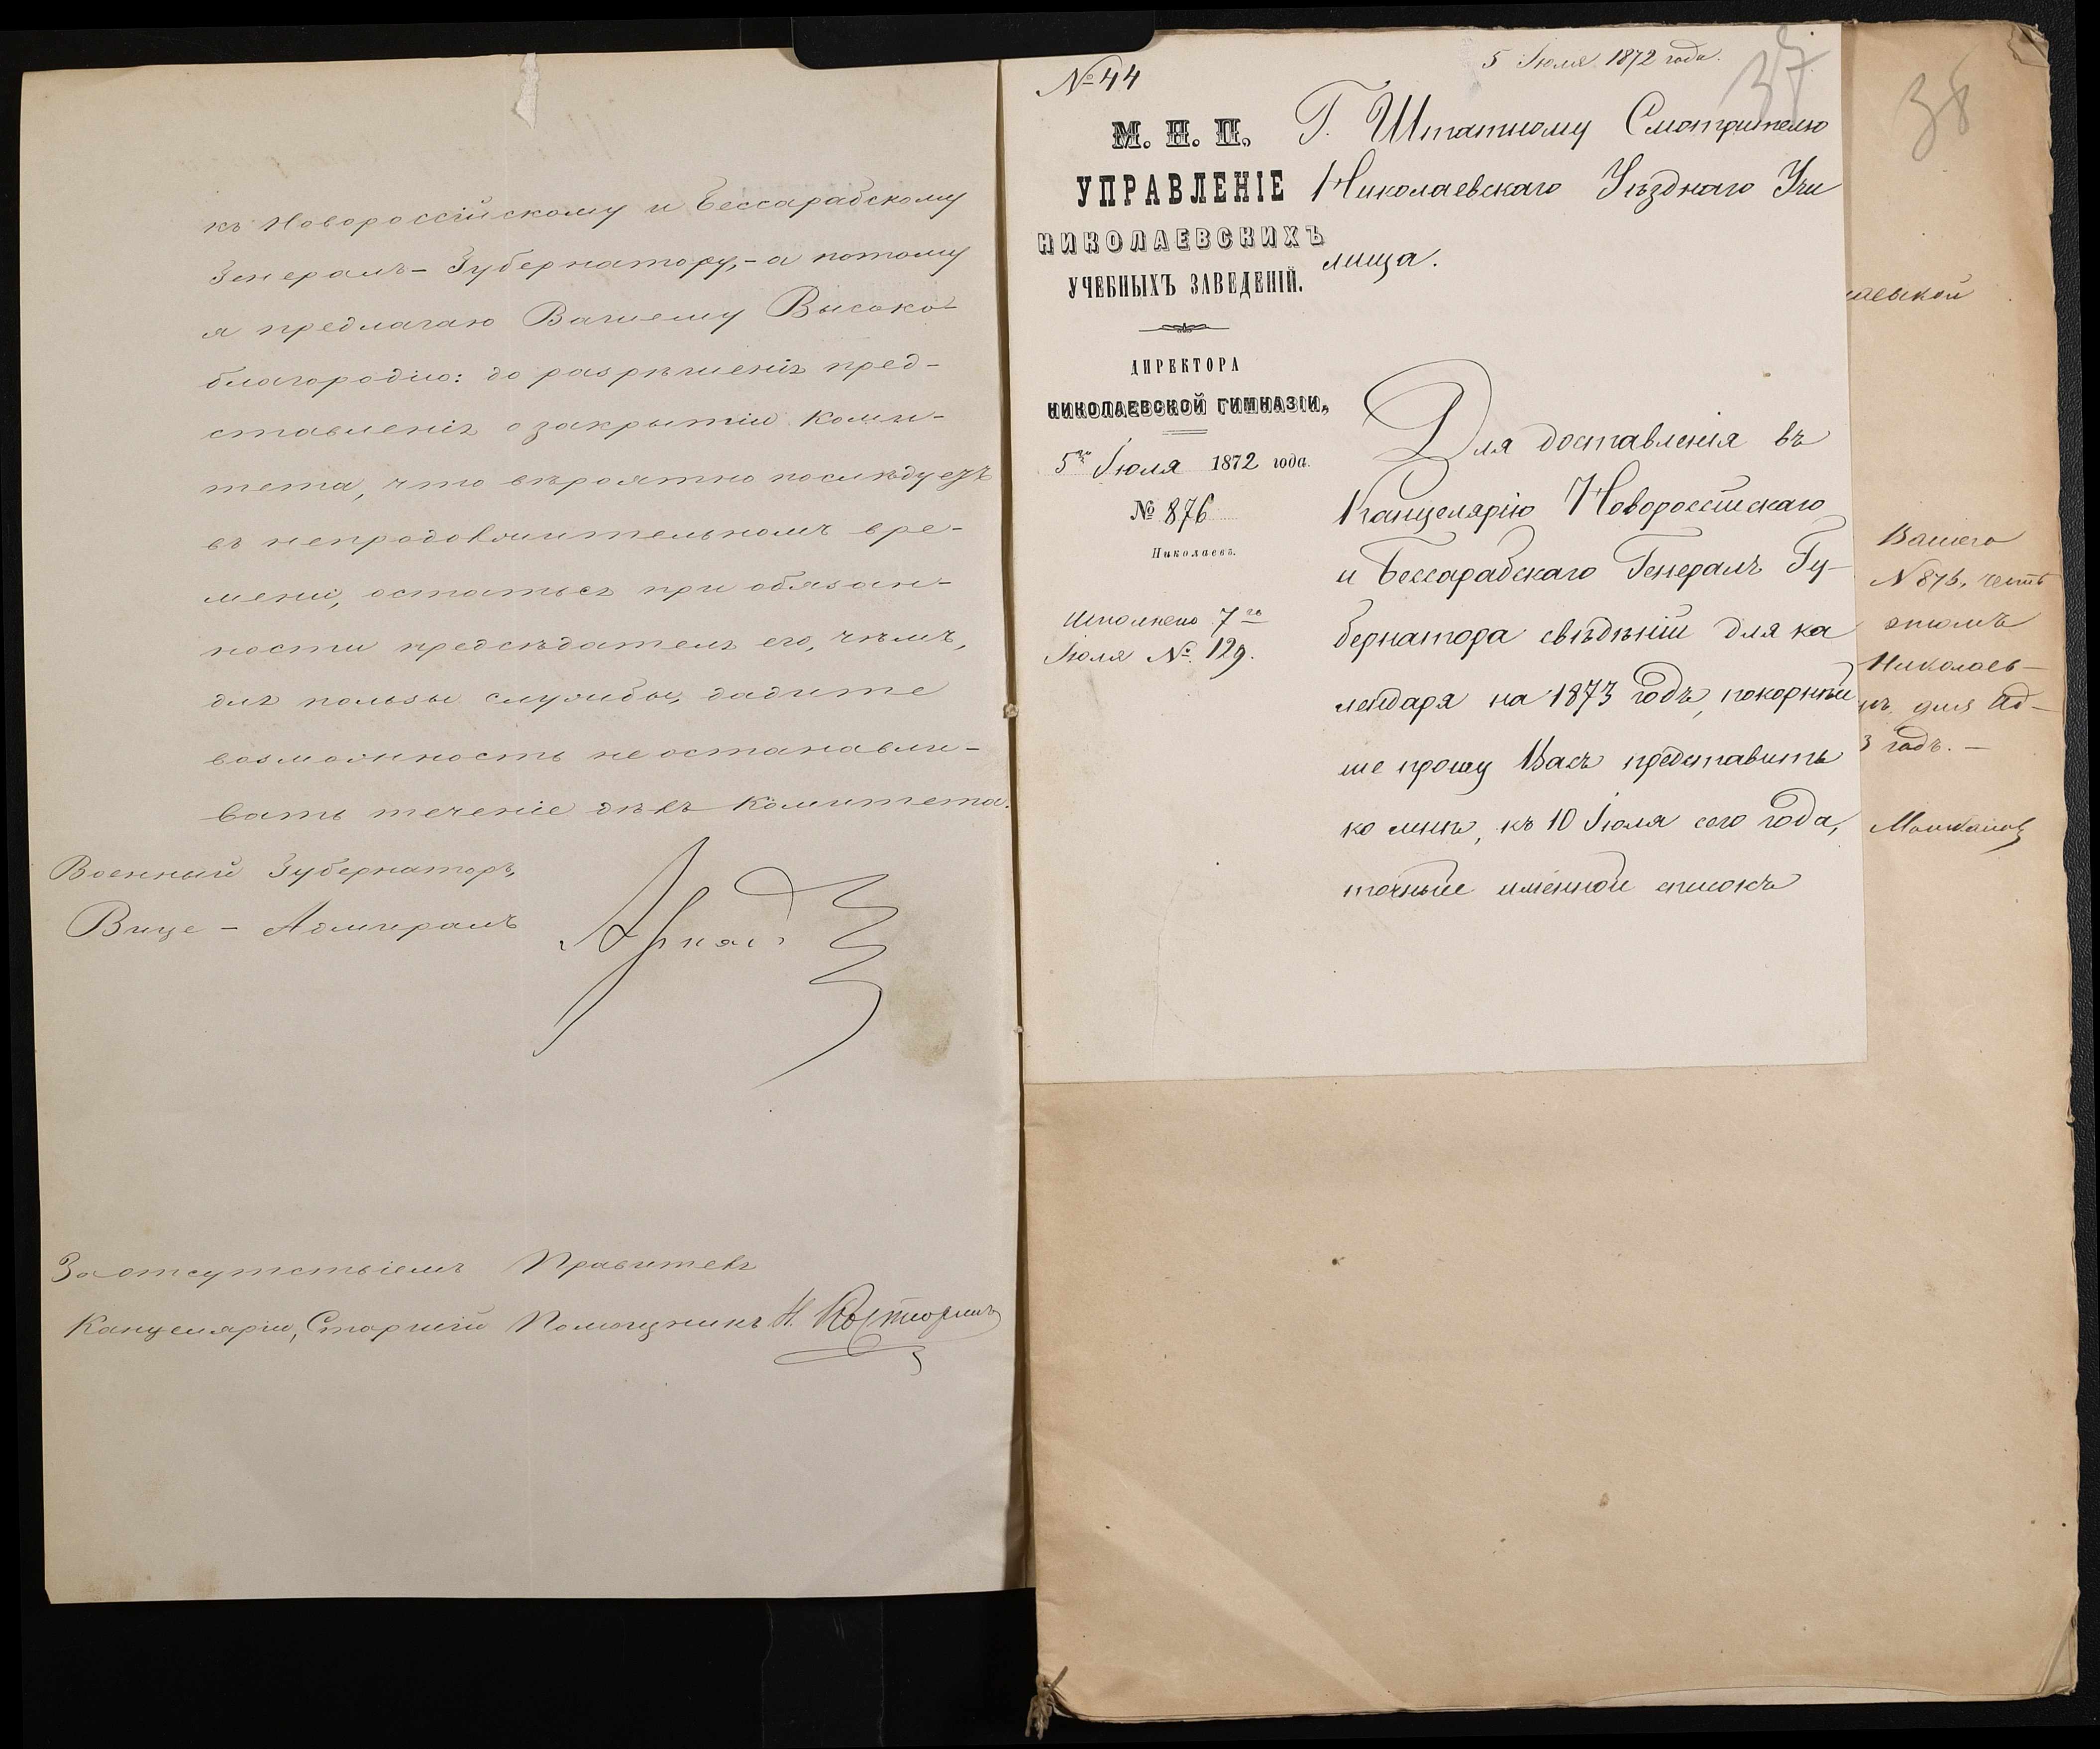 къ Новороссійскому и Бессарабскому
Генералъ-Губернатору,-а потому
я предлагаю Вашему Высоко-
благородію: до разрѣшенія пред-
ставленія о закрытіи Коми-
тета, что вѣроятно послѣдуетъ
въ непродолжительномъ вре-
мени, остаться при обязан-
ности предсѣдателя его, чѣмъ,
для пользы службы, дадите
возможность не останавли-
вать теченіе дѣлъ Комитета.
Военный Губернаторъ,
Вице-Адмиралъ
За отсутствіемъ Правителя
Канцеляріи, Старшій Помощникъ Н.
37
5 Іюля 1872 года.
№ 44
М. Н. П.
УПРАВЛЕНІЕ
НИКОЛАЕВСКИХЪ
УЧЕБНЫХЪ ЗАВЕДЕНІЙ.
ДИРЕКТОРА
НИКОЛАЕВСКОЙ ГИМНАЗІИ,
5го Іюля 1872 года.
№ 876
Николаевъ.
Исполнено 7го
Іюля № 129.
Г. Штатному Смотрителю
Николаевскаго Уѣзднаго Учи
лища.
Для доставленія въ
Канцелярію Новороссійскаго
и Бессарабскаго Генералъ Гу-
бернатора свѣдѣній для ка
лендаря на 1873 годъ, покорнѣй
ше прошу Васъ представить
ко мнѣ, къ 10 Іюля сего года,
точный именной списокъ
38
аевской
Вашего
№ 876, честь
этомъ
Николаев-
для Ад-
3 годъ.-